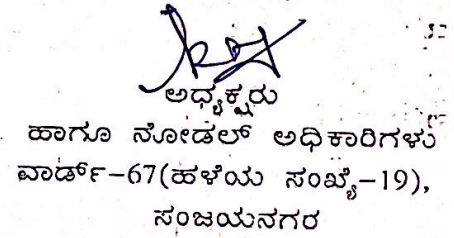 ಅಧ್ಯಕ್ಷರು
ಹಾಗೂ ನೋಡಲ್ ಅಧಿಕಾರಿಗಳು
ವಾರ್ಡ್-67(ಹಳೆಯ ಸಂಖ್ಯೆ-19),
ಸಂಜಯನಗರ